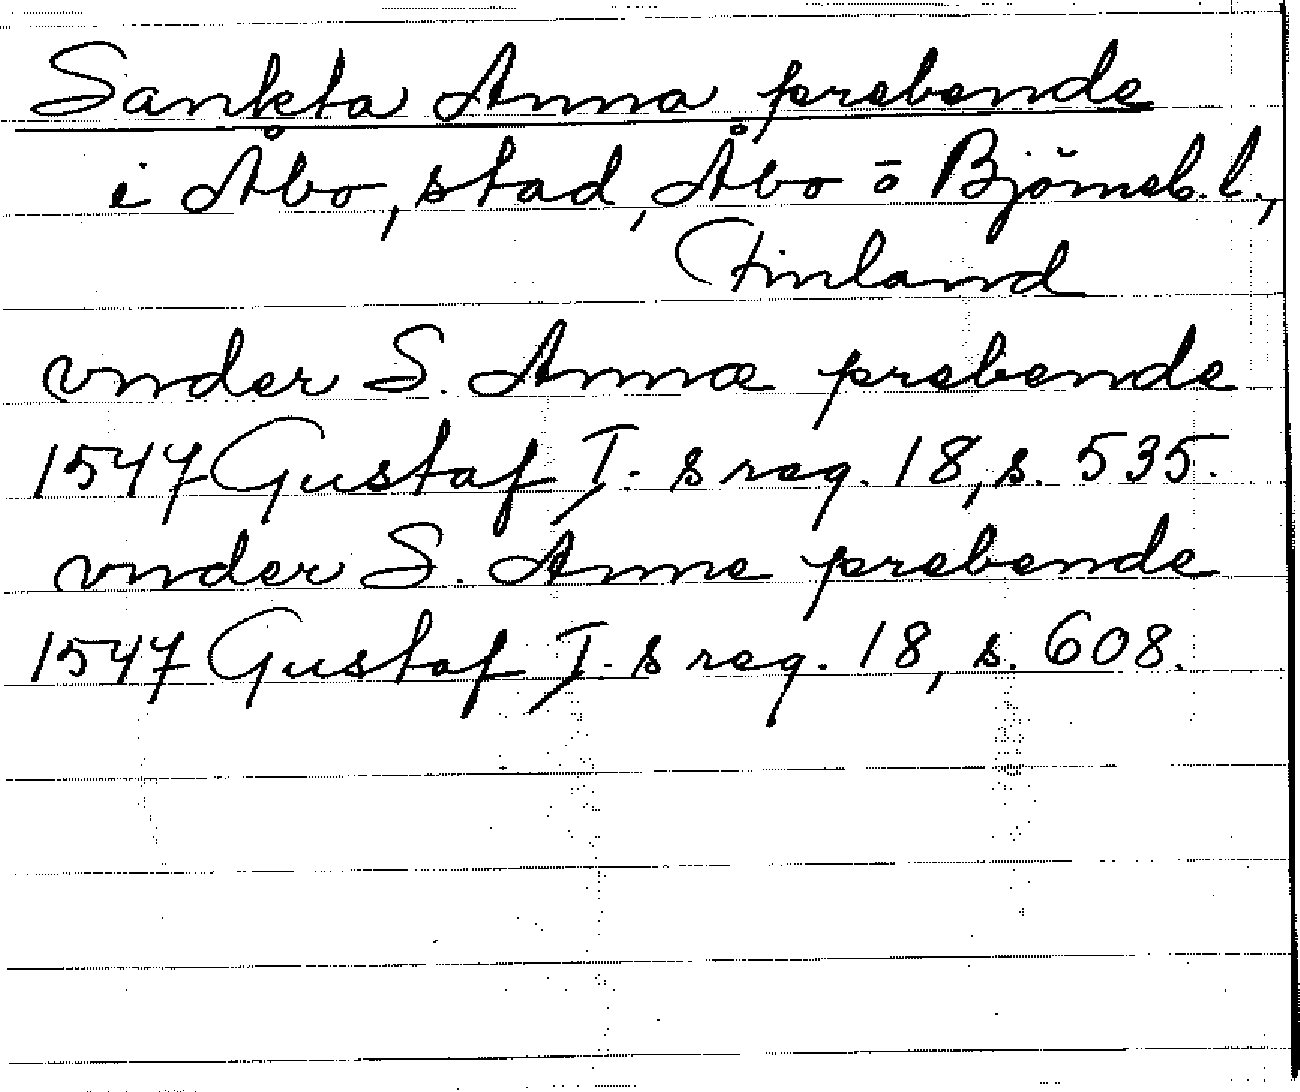 Sankta Anna prebende
i Åbo, stad, Åbo o Björneb. l.,
Finland
vnder S. Annæ prebende
1547 Gustaf I. s reg. 18, s. 535.
vnder S. Anne prebende
1547 Gustaf I. s reg. 18, s. 608.